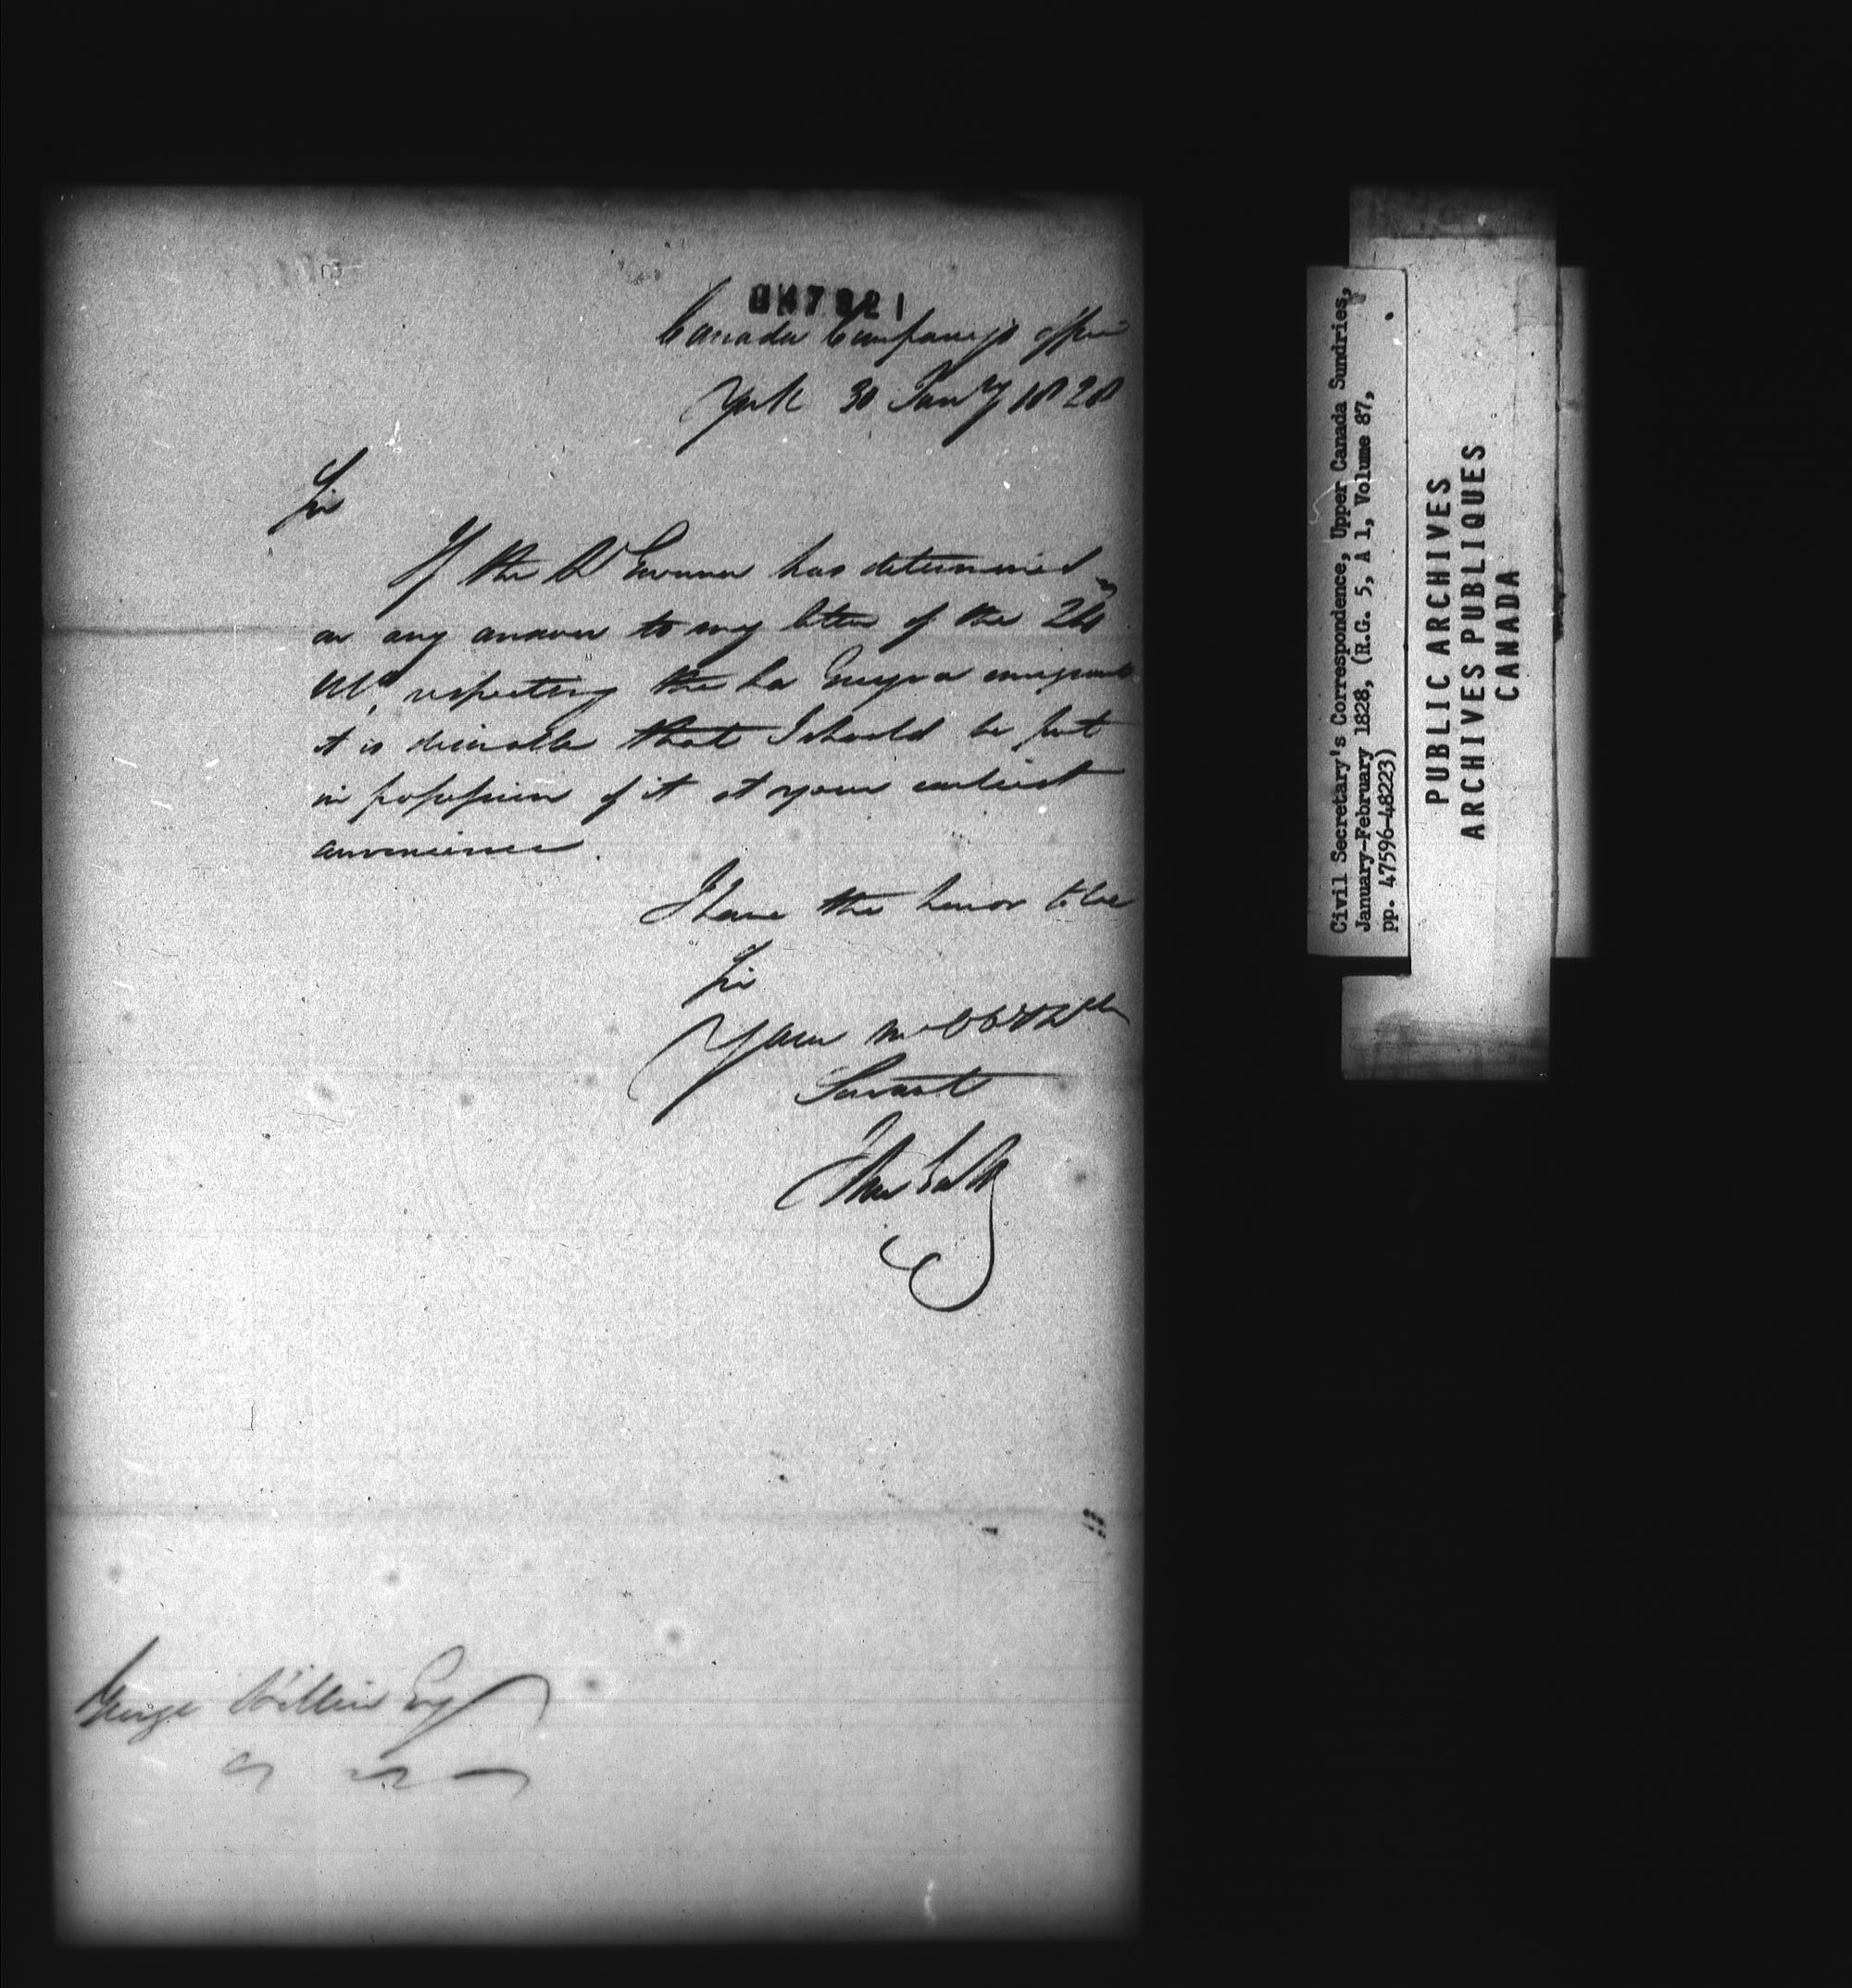 047821
Canada Company's office
York 30 Jany 1828
Sir
If the Lt Governor has determined
on any answer to my letter of the 24
Ulto, respecting the La Guayra emigrants
it is desirable that I should be put
in possession of it at your earliest
convenience.
I have the honor to be
Sir
Your
Servant
John Galt
George Hillier Esq
Civil Secretary's Correspondence, Upper Canada Sundries,
January-February 1828, (R.G. 5, A 1, Volume 87,
pp. 47596-48223)
PUBLIC ARCHIVES
ARCHIVES PUBLIQUES
CANADA